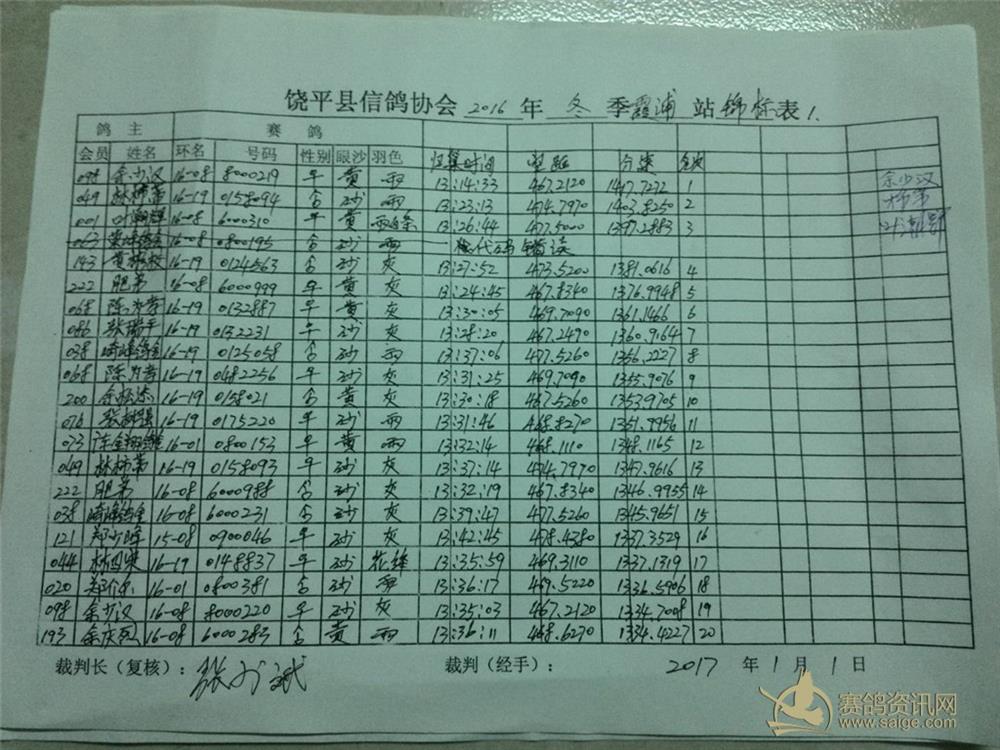 饶平县信鸽协会 2016 年 冬 季霞浦 站锦标表1.
鸽 主 赛 鸽
会员 姓名 环名 号码 性别 眼沙 羽色 归巢时间 空距 分速 名次
098 余少汉 16-08 8000219 黄 雨 13:14:33 467.2120 1417.7272 1 余少汉
049 林柿第 16-19 0158094 沙 雨 13:23:13 474.7970 1403.8250 2 柿第
001 16-08 6000310 黄 雨白条 13:26:44 477.5000 1397.2883 3
063 16-08 0800195 沙 雨 代码错读
143 16-19 0124563 沙 灰 13:27:52 473.5200 1381.0616 4
222 肥弟 16-08 6000999 黄 灰 13:24:45 467.8340 1376.9948 5
068 陈为孝 16-19 0132887 黄 灰 13:30:05 469.7090 1361.1466 6
086 张瑞平 16-19 0132231 沙 灰 13:28:20 467.2490 1360.9164 7
038 16-19 0125058 沙 雨 13:37:06 477.5260 1356.2227 8
068 陈为孝 16-19 0482256 沙 灰 13:31:25 469.7090 1355.9076 9
200 16-19 0158021 黄 灰 13:30:18 467.5260 1353.9705 10
076 16-19 0175220 沙 雨 13:31:46 468.8270 1351.9956 11
073 16-01 0800153 黄 雨 13:32:14 468.1110 1348.1165 12
049 林柿第 16-19 0158093 沙 灰 13:37:14 474.7970 1347.9616 13
222 肥弟 16-08 6000988 沙 灰 13:32:19 467.8340 1346.9955 14
038 16-08 6000231 沙 灰 13:39:47 477.5260 1345.9651 15
121 15-08 0900046 沙 灰 13:42:45 478.4380 1337.3529 16
044 16-19 0148837 沙 13:35:59 469.3110 1337.1319 17
020 16-01 0800381 沙 雨 13:36:17 469.5220 1336.5906 18
098 余少汉 16-08 8000220 沙 灰 13:35:03 467.2120 1334.7008 19
193 余庆烈 16-08 6000283 黄 雨 13:36:11 468.6270 1334.4227 20
裁判长（复核）： 裁判（经手）： 2017 年 1 月 1 日
赛鸽资讯网
www.saige.com